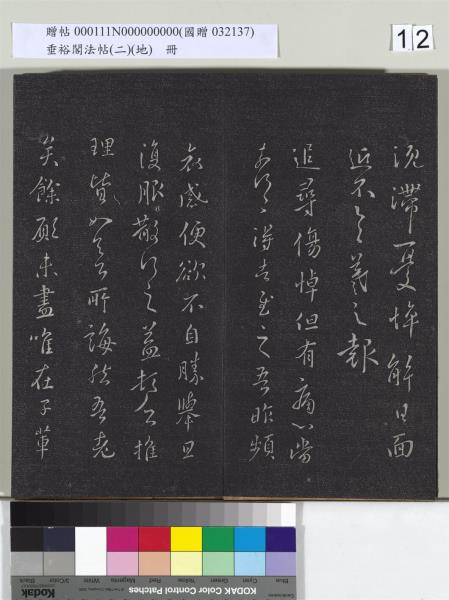 贈帖 000111N000000000(國贈 032137)
垂裕閣法帖(二)(地)　冊
12
沉滯憂悴解日面
近不羲之報
追尋傷悼但有痛心當
奈何奈何得告慰之吾昨頻
哀感便欲不自勝舉旦
復服散行之益頓乏推
理皆如足下所誨然吾老
矣餘願未盡唯在子輩
Blue
Cyan
Green
Yellow
Red
Magenta
White
3/Color
Black
Kodak
KODAK Color Control Patches